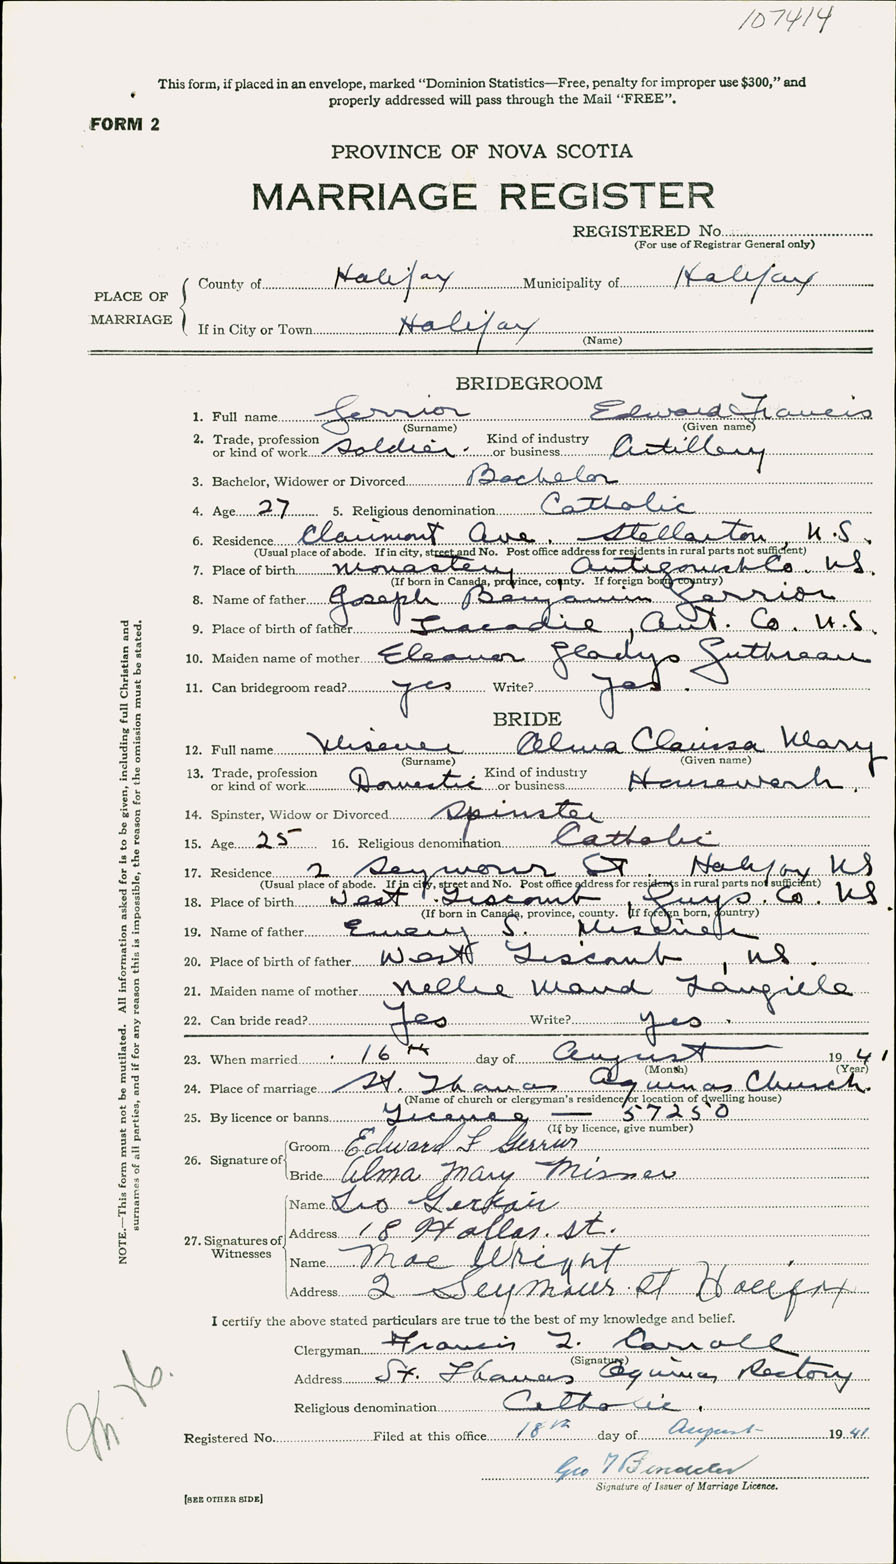 107414
This form, if placed in an envelope, marked “Dominion Statistics—Free, penalty for improper use $300,” and
properly addressed will pass through the Mail “FREE”.
FORM 2
PROVINCE OF NOVA SCOTIA
MARRIAGE REGISTER
REGISTERED No.
(For use of Registrar General only)
PLACE OF MARRIAGE
County of Halifax Municipality of Halifax
If in City or Town Halifax
(Name)
BRIDEGROOM
1. Full name Gerrior Edward Francis
(Surname) (Given name)
2. Trade, profession or kind of work Soldier. Kind of industry or business Artillery
3. Bachelor, Widower or Divorced Bachelor
4. Age 27 5. Religious denomination Catholic
6. Residence Clairmont Ave. Stellarton, N.S.
(Usual place of abode. If in city, street and No. Post office address for residents in rural parts not sufficient)
7. Place of birth Monastery Antigonish Co. N.S.
(If born in Canada, province, county. If foreign born, country)
8. Name of father Joseph Benjamin Gerrior
9. Place of birth of father Tracadie, Ant. Co. N.S.
10. Maiden name of mother Eleanor Gladys Guthreau
11. Can bridegroom read? yes Write? yes.
BRIDE
12. Full name Misener Alma Clarissa Mary
(Surname) (Given name)
13. Trade, profession or kind of work Domestic Kind of industry or business Housework.
14. Spinster, Widow or Divorced Spinster
15. Age 25 16. Religious denomination Catholic
17. Residence 2 Seymour St Halifax NS
(Usual place of abode. If in city, street and No. Post office address for residents in rural parts not sufficient)
18. Place of birth West Liscomb, Guys. Co. NS.
(If born in Canada, province, county. If foreign born, country)
19. Name of father Emery S. Misener
20. Place of birth of father West Liscomb, NS.
21. Maiden name of mother Nellie Maud Langille
22. Can bride read? Yes Write? yes.
23. When married 16th day of August 1941
(Month) (Year)
24. Place of marriage St. Thomas Aquinas Church.
(Name of church or clergyman's residence or location of dwelling house)
25. By licence or banns Licence — 57250
(If by licence, give number)
26. Signature of Groom Edward F Gerrior
Bride Alma Mary Misner
27. Signatures of Witnesses
Name Leo
Address 18 Hollis. St.
Name Mae Wright
Address 2 Seymour St Halifax
I certify the above stated particulars are true to the best of my knowledge and belief.
Clergyman Francis L. Carroll
(Signature)
Address St. Thomas Aquinas Rectory
Religious denomination Catholic.
Registered No. Filed at this office 18th day of August 1941
Geo
Signature of Issuer of Marriage Licence.
[SEE OTHER SIDE]
NOTE.—This form must not be mutilated. All information asked for is to be given, including full Christian and
surnames of all parties, and if for any reason this is impossible, the reason for the omission must be stated.